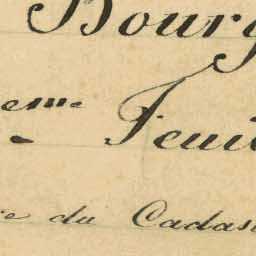 Bourg
eme Feui
re du Cadas